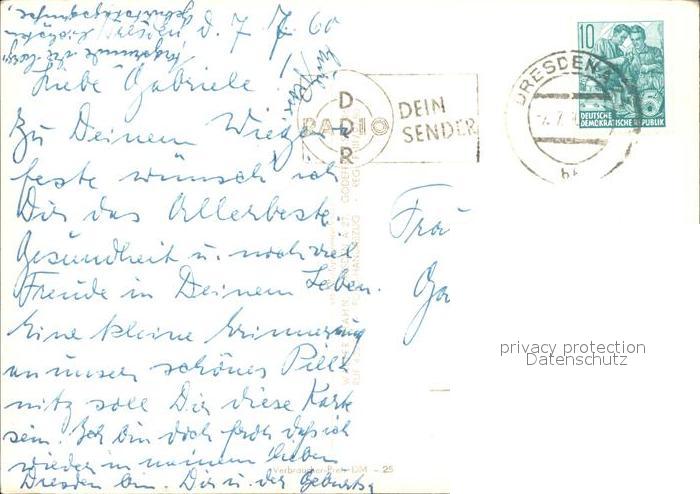 Dresden d. 7. 7. 60
Liebe Gabriele!
Zu Deinem Wiegen
feste wünsch ich
Dir das Allerbeste.
Gesundheit u. noch viel
Freude in Deinem Leben.
Eine kleine Erinnerung
an unser schönes Pill
nitz soll Dir diese Karte
sein. Ich bin doch froh daß ich
wieder in meinem lieben
Dresden bin. Dir u. der Geburtsg
DDR
RADIO
DEIN
SENDER
DRESDEN
10
DEUTSCHE
DEMOKRATISCHE REPUBLIK
Frau
Ga
Verbraucher-Preis DM -25
privacy protection
Datenschutz